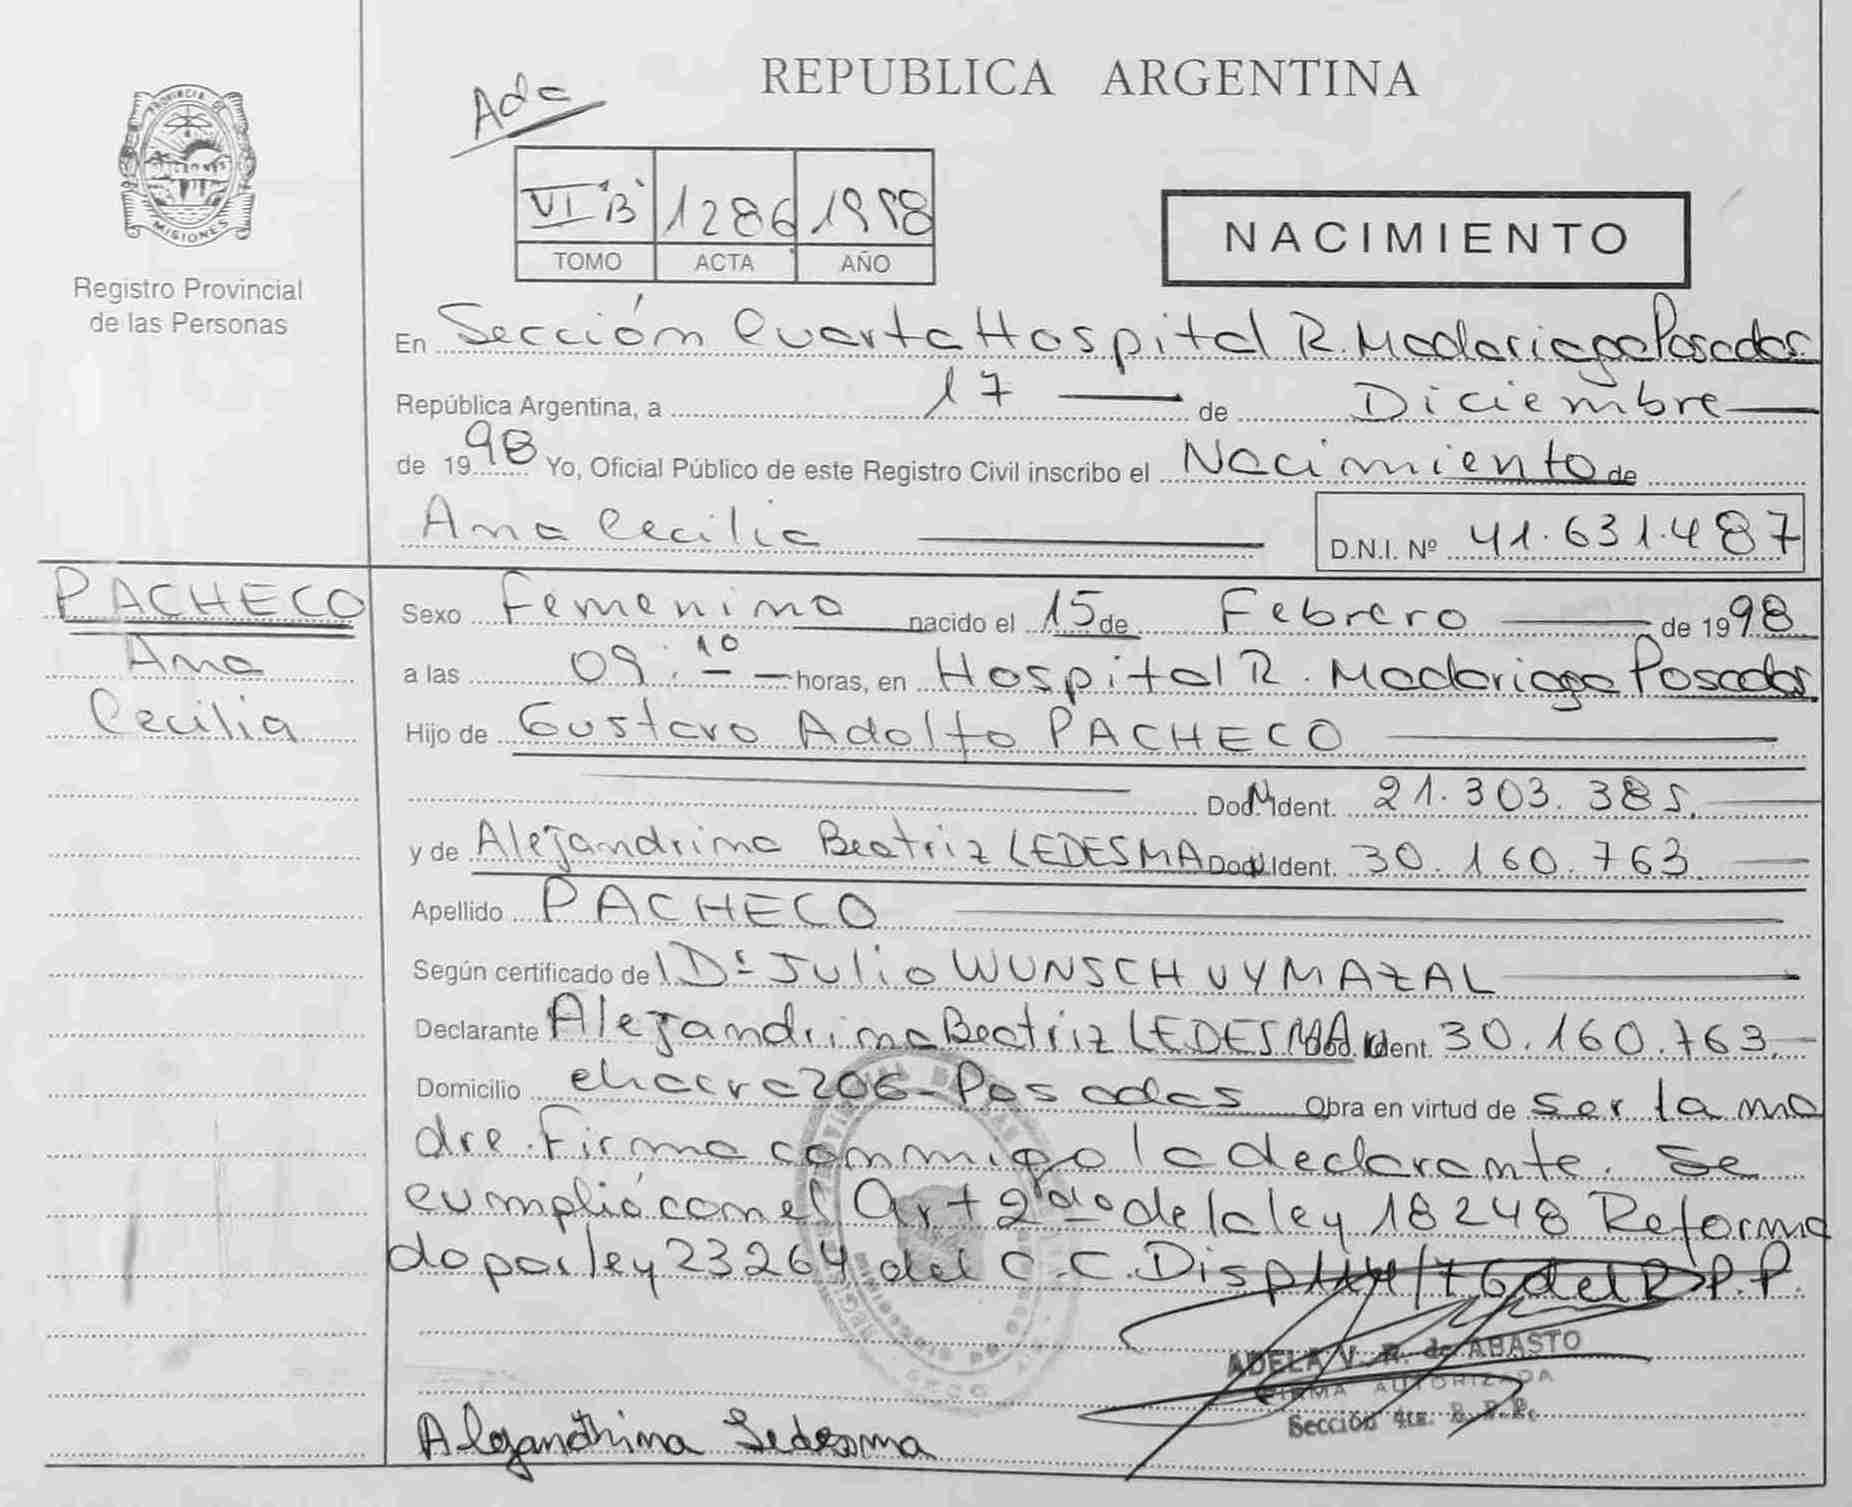 REPUBLICA ARGENTINA
Ada
PROVINCIA DE
MISIONES
Registro Provincial
de las Personas
VI "B" 1286 1998
TOMO ACTA AÑO
NACIMIENTO
En Sección Cuarta Hospital R. Madariaga Posadas.
República Argentina, a 17 de Diciembre
de 1998 Yo, Oficial Público de este Registro Civil inscribo el Nacimiento de
Ana Cecilia D.N.I. Nº 41.631.487
PACHECO
Ana
Cecilia
Sexo Femenino nacido el 15 de Febrero de 1998
a las 09:10 horas, en Hospital R. Madariaga Posadas.
Hijo de Gustavo Adolfo PACHECO
Doc. N Ident. 21.303.385.
y de Alejandrina Beatriz LEDESMA Doc. N Ident. 30.160.763.
Apellido PACHECO
Según certificado del Dr Julio WUNSCH VYMAZAL
Declarante Alejandrina Beatriz LEDESMA Doc. N Ident. 30.160.763.
Domicilio chacra 206 - Posadas Obra en virtud de ser la ma
dre. Firma conmigo la declarante. Se
cumplió con el Art 2do de la ley 18248 Reforma
do por ley 23264 del C.C. Disp 144/76 del R.P.P.
ADELA V. R. de ABASTO
FIRMA AUTORIZADA
Sección 4ta. R. P. P.
Alejandrina Ledesma